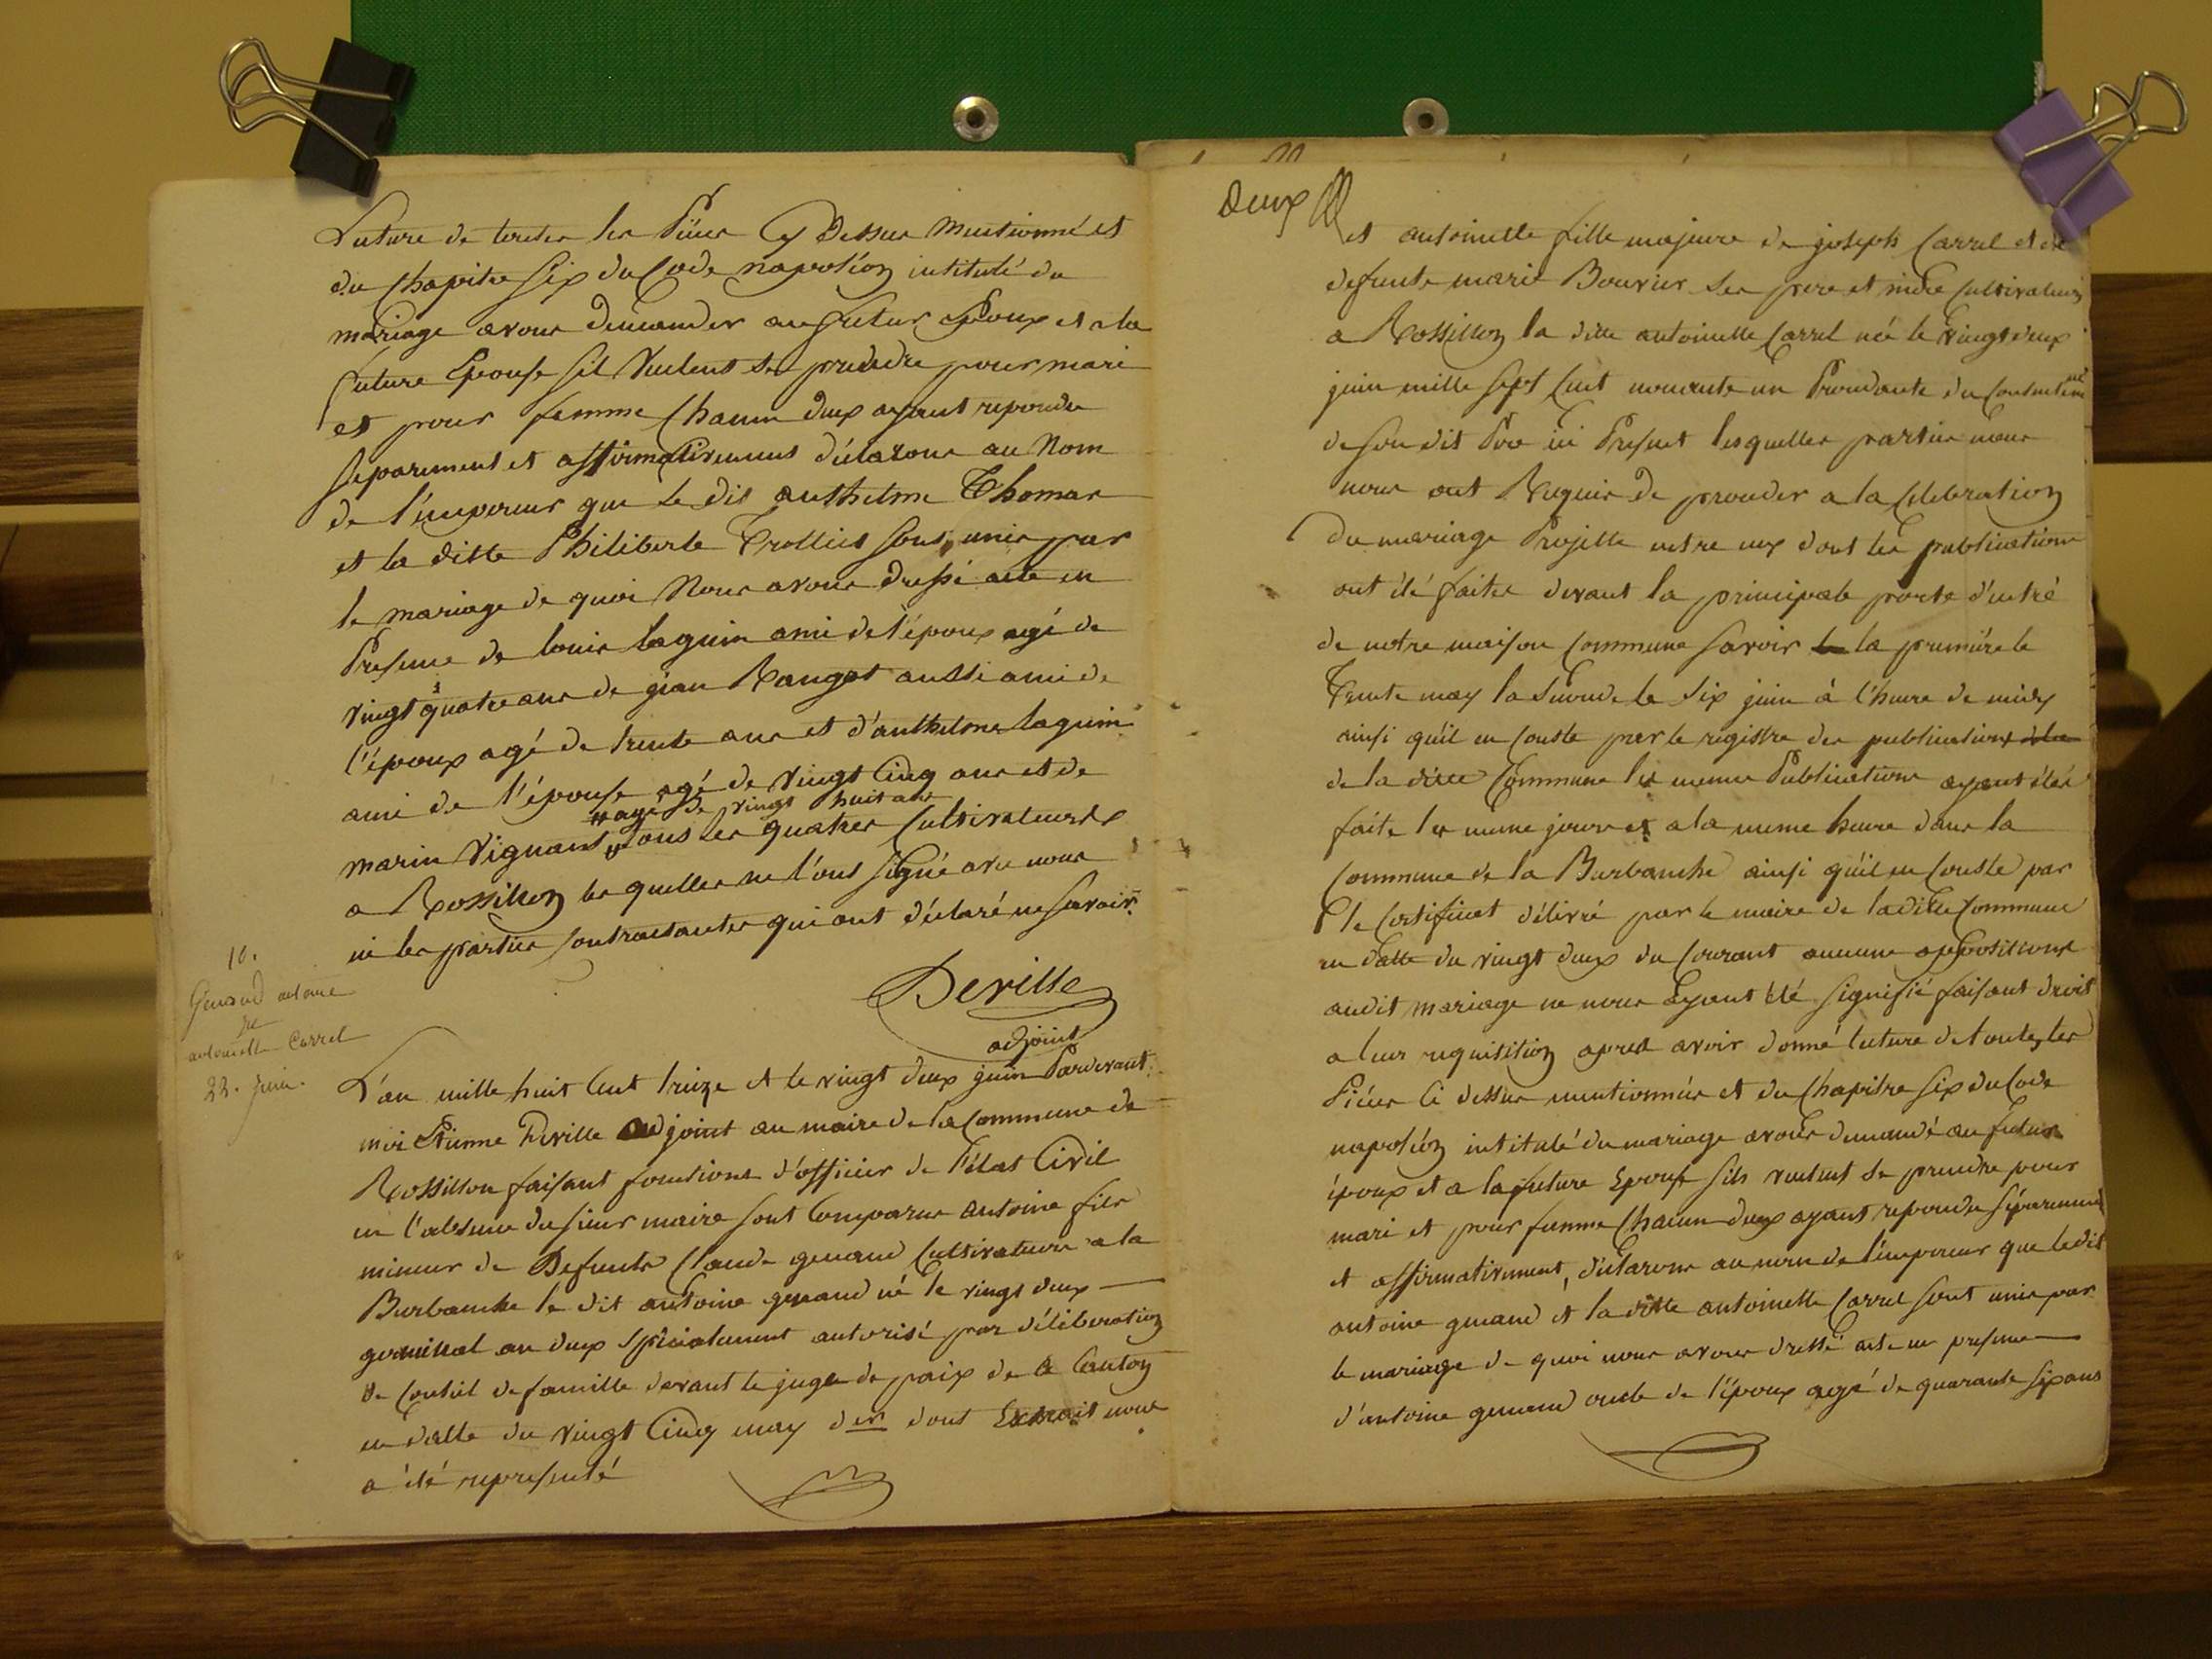 Lecture de toutes les Pièces Cy Dessus Mentionné et
du Chapitre Six du Code napoléon intitulé du
mariage avons demander au futur Epoux et a la
future Epouse sil Veulent se prendre pour mari
et pour femme Chacun deux ayant repondu
separement et affirmativement déclarons au Nom
de l'émpereur que le dit anthelme Thomas
et la ditte Philiberte Trolliet sont unis par
le mariage de quoi Nous avons dressé acte en
Presence de louis laguin ami de l'époux agé de
vingt quatre ans de jean Ranget aussi ami de
l'époux agé de trente ans et d'anthelme laguin
ami de l'épouse agé de vingt Cinq ans et de
agé de vingt huit ans
marin Vignant tous les quatres Cultivateurs
a Rossillon les quelles ne l'ont signé avec nous
ni les parties Contractantes qui ont déclaré ne savoir.
Deville
adjoint
10.
Genand antoine
et
antoinette Carrel
22. juin.
L'an mille huit Cent treize et le vingt deux juin Pardevant
moi Etienne Deville adjoint au maire de la Commune de
Rossillon faisant fonctions d'officier de l'état Civil
en l'absence du sieur maire sont Comparus antoine fils
mineur de Defunts Claude genand Cultivateur a la
Burbanche le dit antoine genand né le vingt deux
germinal an deux spécialement autorisé par déliberation
de Conseil de famille devant le juge de paix de ce Canton
en datte du vingt Cinq may der dont Extrait nous
a été representé
Deux
et antoinette fille majeure de joseph Carrel et de
defunte marie Bouvier ses pere et mere Cultivateurs
a Rossillon la ditte antoinette Carrel née le vingt deux
juin mille sept Cent nonante un Procedante du Consentement
de son dit Pere ici Present lesquelles parties nous
nous ont Requis de proceder a la Celebration
Du mariage Projetté entre eux dont les publications
ont été faites devant la principale porte d'entré
de notre maison Commune savoir la première le
Trente may la seconde le six juin à l'heure de midy
ainsi qu'il en Conste par le registre des publications
de la ditte Commune les memes Publications ayant étés
faite les meme jours et a la meme heure dans la
Commune de la Burbanche ainsi qu'il en Conste par
le Certificat délivré par le maire de la ditte Commune
en datte du vingt deux du Courant aucune oppositions
audit mariage ne nous Eyant été signifié faisant droit
a leur requisition apres avoir donné lecture de toutes les
Pièces Ci dessus mentionnées et du Chapitre six du Code
napoléon intitulé du mariage avons demandé au futur
époux et a la future Epouse sils veulent se prendre pour
mari et pour femme Chacun deux ayant repondu séparement
et affirmativement, déclarons au nom de l'émpereur que ledit
antoine genand et la ditte antoinette Carrel sont unis par
le mariage de quoi nous avons dressé acte en presence
d'antoine genand oncle de l'époux agé de quarante six ans